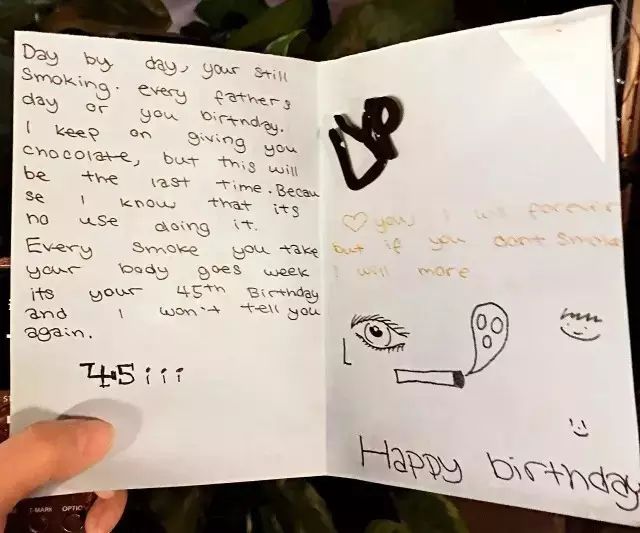 Day by day, your still
smoking. every fathers
day or you birthday.
I keep on giving you
chocolate, but this will
be the last time. Becau
se I know that its
no use doing it.
Every smoke you take
your body goes week
its your 45th Birthday
and I won't tell you
again.
45¡¡¡
♡ you, I will forever
but if you dont smoke
I will more
Happy birthday
T-MARK OPTIO